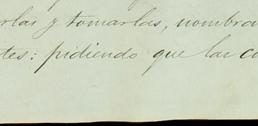 rlas y tomarlas, nombra
tes: pidiendo que las c